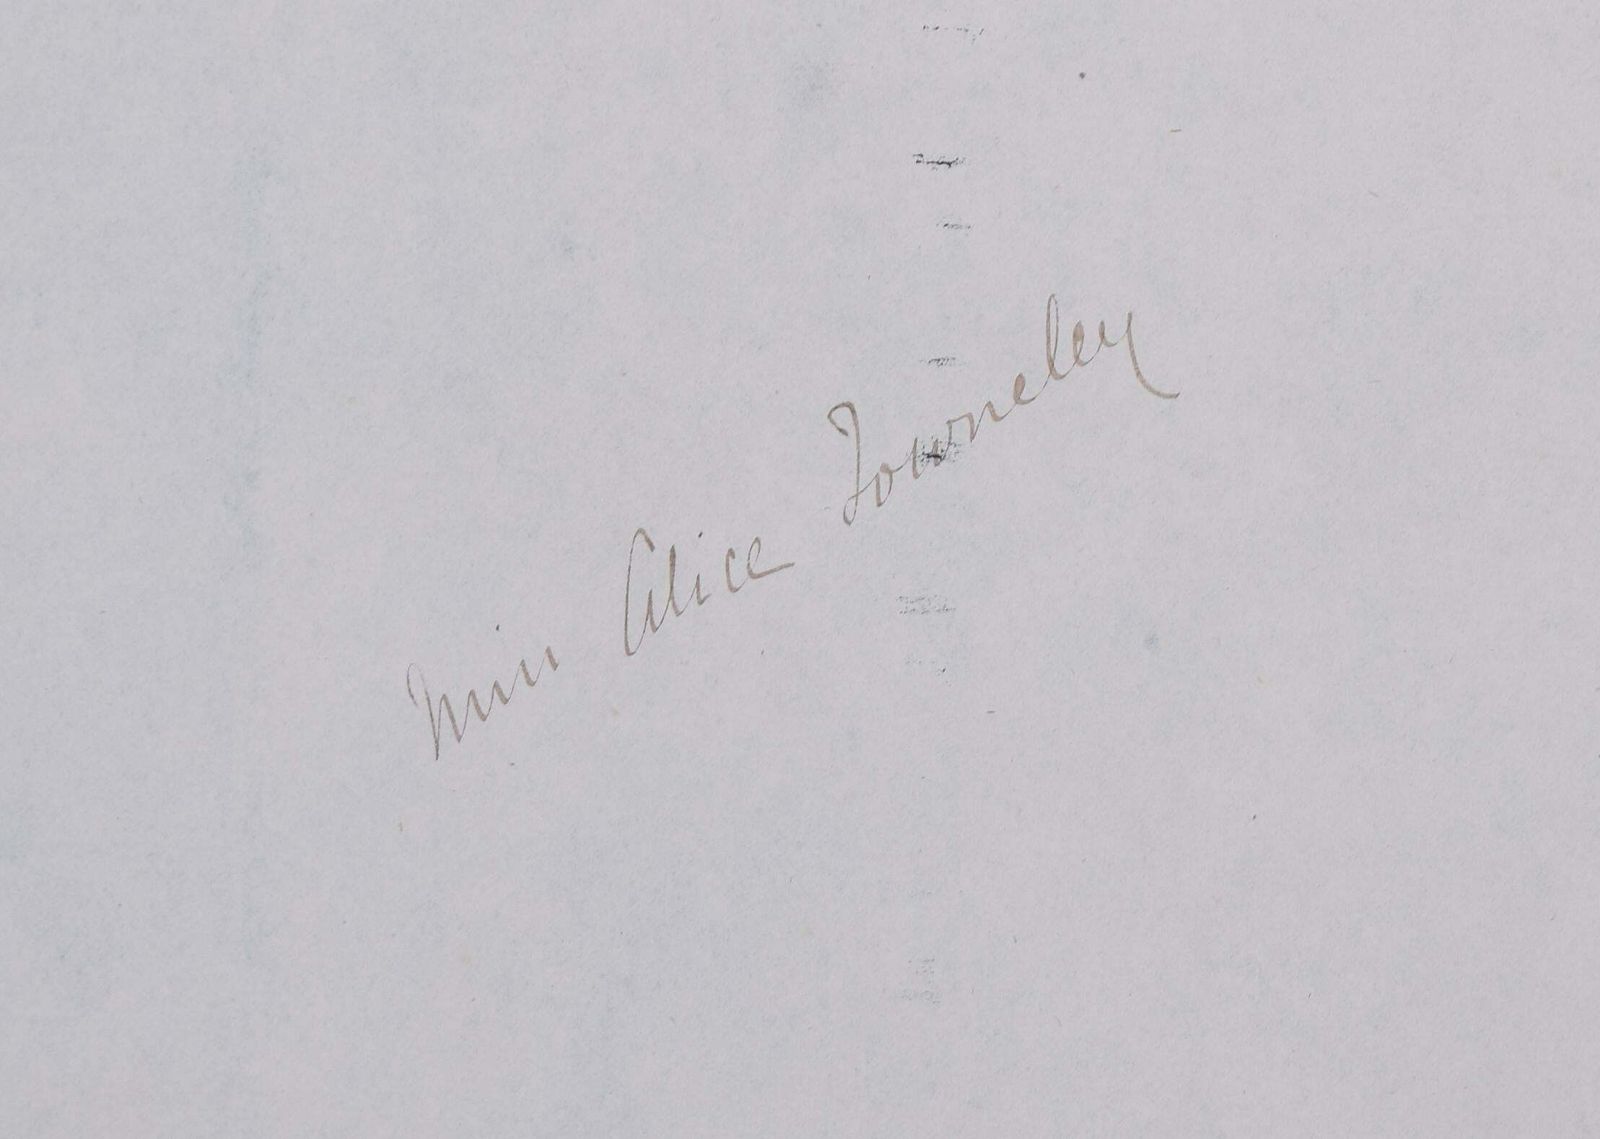 Miss Alice Towneley